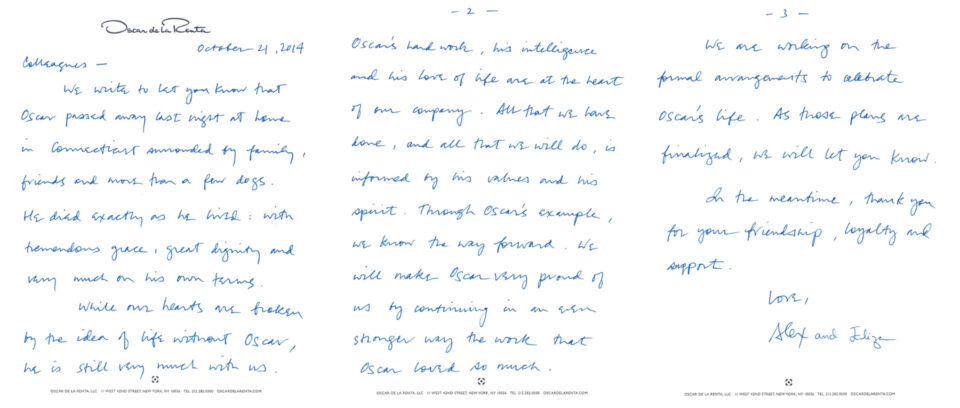 Oscar de la Renta
October 21, 2014
Colleagues —
We write to let you know that
Oscar passed away last night at home
in Connecticut surrounded by family,
friends and more than a few dogs.
He died exactly as he lived: with
tremendous grace, great dignity and
very much on his own terms.
While our hearts are broken
by the idea of life without Oscar,
he is still very much with us.
OSCAR DE LA RENTA, LLC 11 WEST 42ND STREET, NEW YORK, NY 10036 TEL 212.282.0500 OSCARDELARENTA.COM
- 2 -
Oscar's hard work, his intelligence
and his love of life are at the heart
of our company. All that we have
done, and all that we will do, is
informed by his values and his
spirit. Through Oscar's example,
we know the way forward. We
will make Oscar very proud of
us by continuing in an even
stronger way the work that
Oscar loved so much.
OSCAR DE LA RENTA, LLC 11 WEST 42ND STREET, NEW YORK, NY 10036 TEL 212.282.0500 OSCARDELARENTA.COM
- 3 -
We are working on the
formal arrangements to celebrate
Oscar's life. As those plans are
finalized, we will let you know.
In the meantime, thank you
for your friendship, loyalty and
support.
Love,
Alex and Eliza
OSCAR DE LA RENTA, LLC 11 WEST 42ND STREET, NEW YORK, NY 10036 TEL 212.282.0500 OSCARDELARENTA.COM